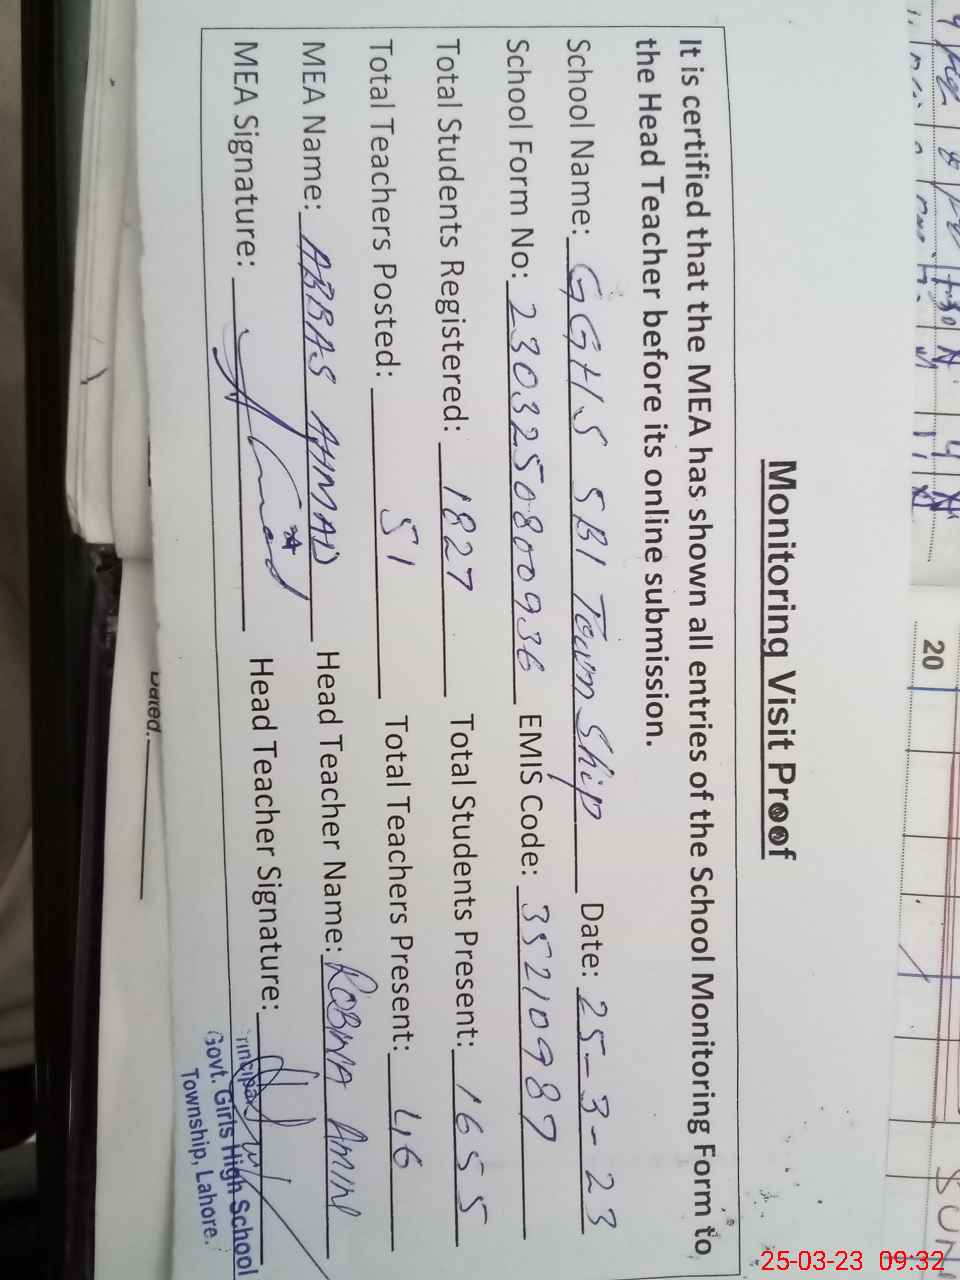 Monitoring Visit Proof
It is certified that the MEA has shown all entries of the School Monitoring Form to
the Head Teacher before its online submission.
School Name: GGHS 5B1 Town Ship Date: 25-3-23
School Form No: 2303250800936 EMIS Code: 35210987
Total Students Registered: 1827 Total Students Present: 1655
Total Teachers Posted: 51 Total Teachers Present: 46
MEA Name: ABBAS AHMAD Head Teacher Name: ROBINA AMIN
MEA Signature: Head Teacher Signature:
Principal
Govt. Girls High School
Township, Lahore.
Dated.
20
25-03-23 09:32